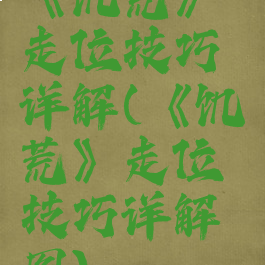 《饥荒》
走位技巧
详解(《饥
荒》走位
技巧详解
图)